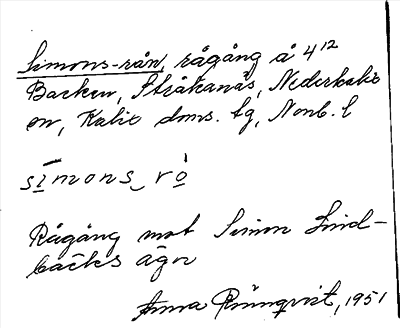 Simons-rån, rågång å 4¹²
Backen, Stråkanäs, Nederkalix
en, Kalix doms. tg, Nonb. l
sīmons‿rò̱
Rågång mot Simon Lind-
bäcks ägor
Anna Rönnqvist, 1951